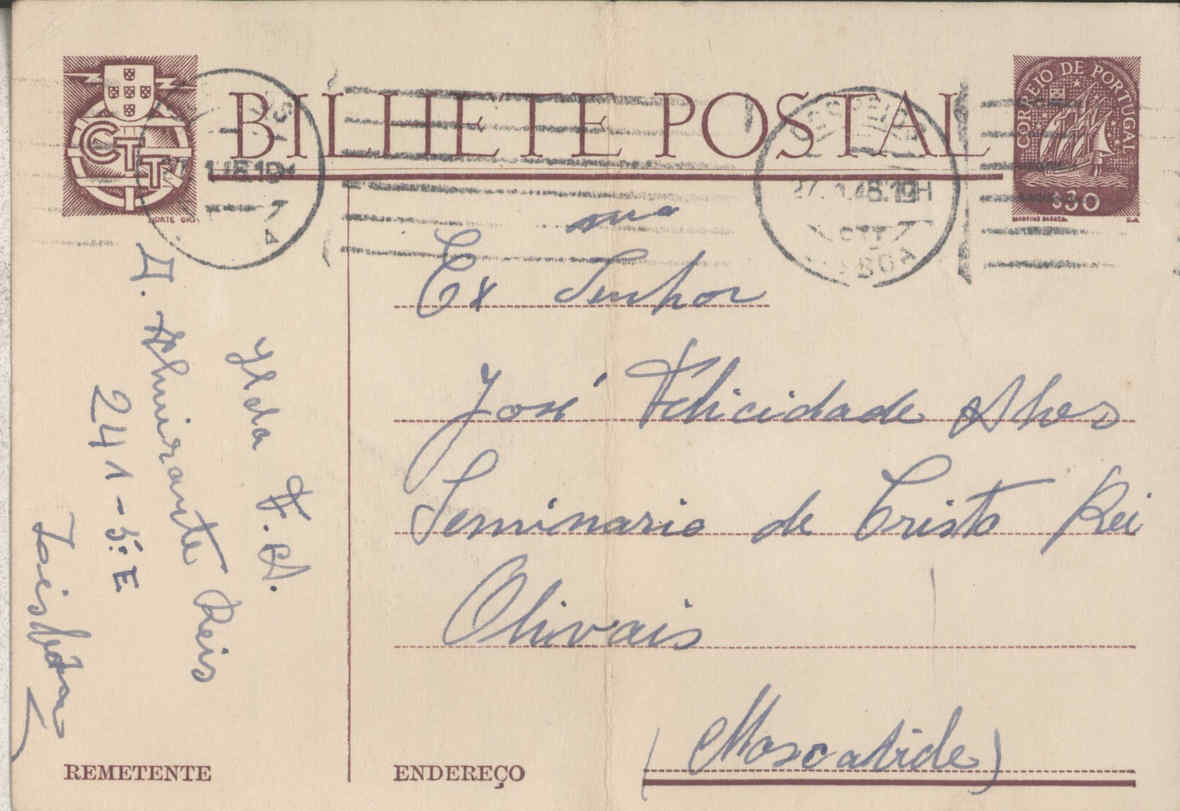 CTT
BILHETE POSTAL
CORREIO DE PORTUGAL
$30
CORREIOS
48.19H
CTT
LISBOA
Ex mo Senhor
José Felicidade Alves
Seminario de Cristo Rei
Olivais
(Moscavide)
Ilda F. A.
A. Almirante Reis
241-5º E
Lisboa
REMETENTE
ENDEREÇO